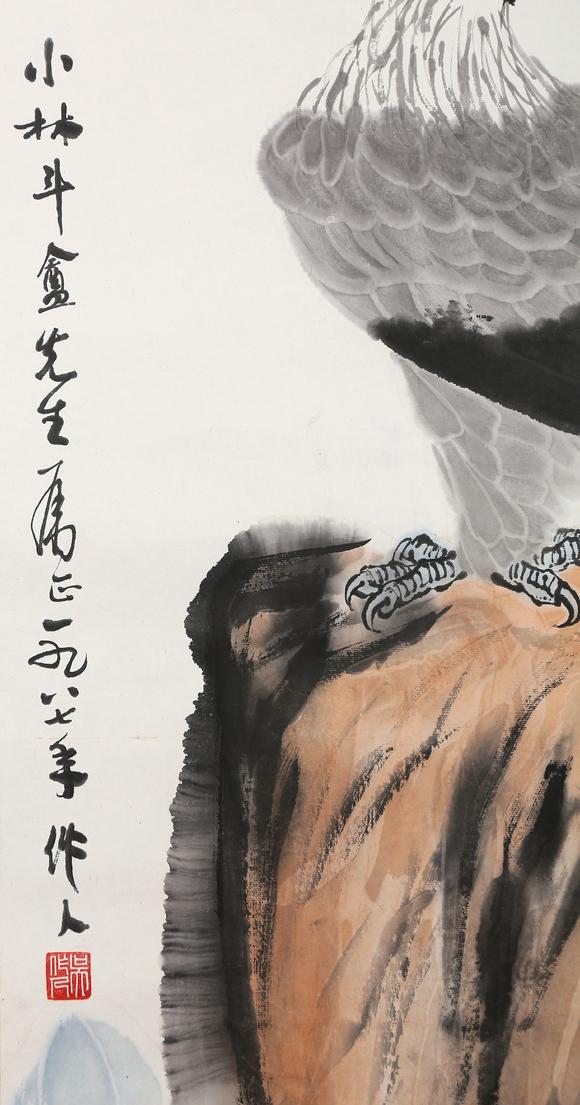 小林斗盦先生属正一九八七年作人
吴作人